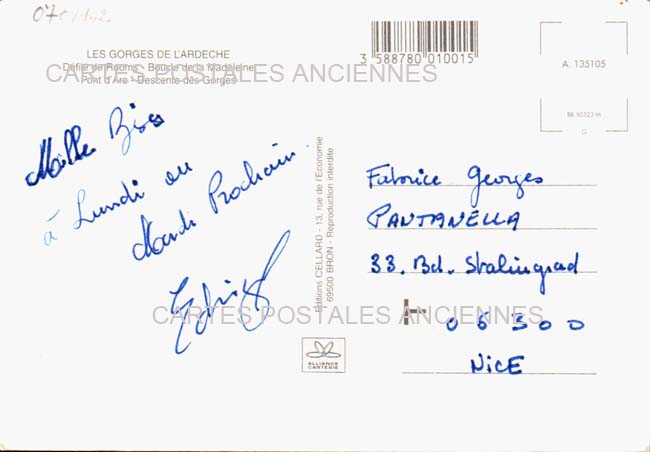 LES GORGES DE L'ARDECHE
Défilé de Ruoms - Boucle de la Madeleine
Pont d'Arc - Descente des Gorges
CARTES POSTALES ANCIENNES
3 588780 010015
A. 135105
BB 50323 M
G
Mille Bises
à Lundi ou
Mardi Prochain.
Edwige
Editions CELLARD - 13, rue de l'Economie
69500 BRON - Reproduction interdite
Fabrice Georges
PANTANELLA
33. Bd. Stalingrad
06300
NICE
CARTES POSTALES ANCIENNES
ALLIANCE
CARTERIE